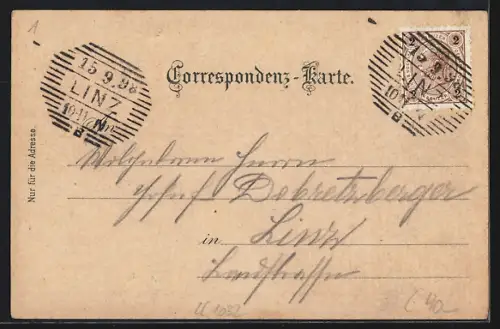 1
15.9.98
LINZ
10-11 N
B
Correspondenz-Karte.
2
LINZ
B
Nur für die Adresse.
Wohlgeboren Herrn
Josef Dobretzberger
in Linz
Landstrasse